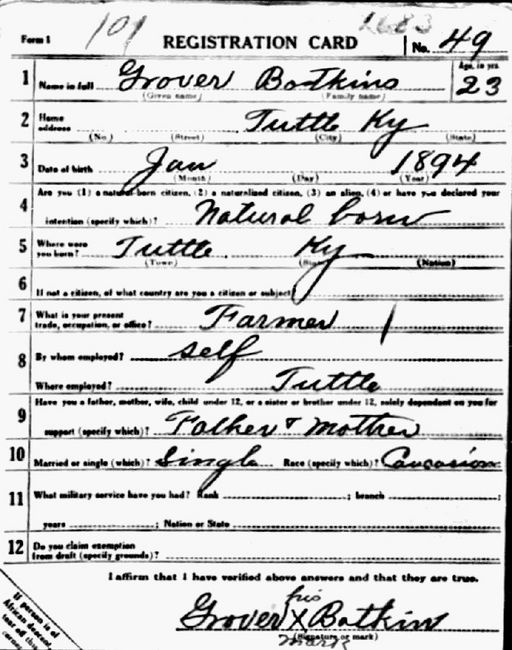 Form 1 101 REGISTRATION CARD No. 49
1 Name in full Grover Botkins Age, in yrs. 23
(Given name) (Family name)
2 Home address Tuttle Ky
(No.) (Street) (City) (State)
3 Date of birth Jan 1894
(Month) (Day) (Year)
Are you (1) a natural-born citizen, (2) a naturalized citizen, (3) an alien, (4) or have you declared your
4 intention (specify which)? Natural born
5 Where were you born? Tuttle Ky
(Town) (State) (Nation)
6 If not a citizen, of what country are you a citizen or subject?
7 What is your present trade, occupation, or office? Farmer
8 By whom employed? self
Where employed? Tuttle
Have you a father, mother, wife, child under 12, or a sister or brother under 12, solely dependent on you for
9 support (specify which)? Father & mother
10 Married or single (which)? Single Race (specify which)? Caucasion
11 What military service have you had? Rank ; branch
years ; Nation or State
12 Do you claim exemption from draft (specify grounds)?
I affirm that I have verified above answers and that they are true.
his
Grover X Botkin
(Signature or mark)
mark
If person is of
African descent,